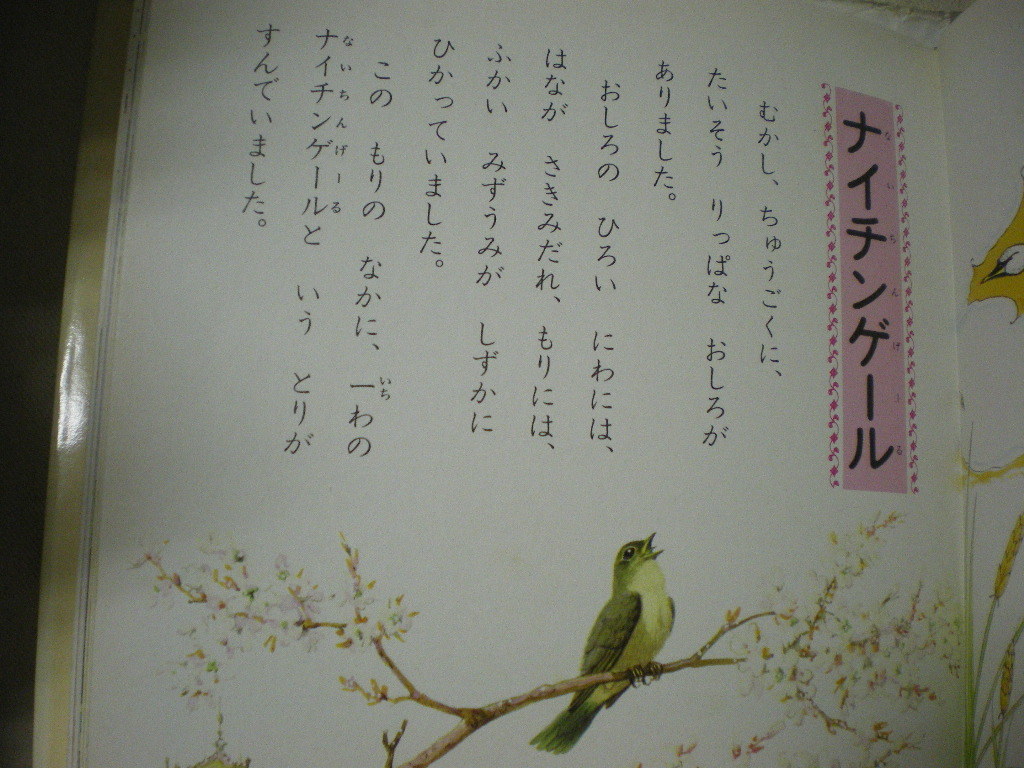 ナイチンゲール
むかし、ちゅうごくに、
たいそう りっぱな おしろが
ありました。
おしろの ひろい にわには、
はなが さきみだれ、もりには、
ふかい みずうみが しずかに
ひかっていました。
この もりの なかに、一わの
ナイチンゲールと いう とりが
すんでいました。